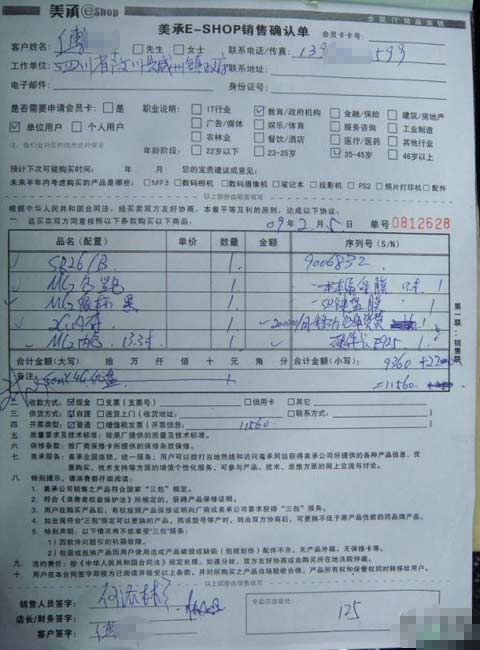 美承eShop
全国IT精品连锁
美承E-SHOP销售确认单
会员卡卡号:
客户姓名: 傅 先生 女士 联系电话/传真: 139 599
工作单位: 四川省汶川县威州镇政府 联系地址:
电子邮件: 身份证号:
是否需要申请会员卡: 是 职业说明: IT行业 教育/政府机构 金融/保险 建筑/房地产
单位用户 个人用户 广告/媒体 娱乐/体育 服务咨询 工业制造
农林业 餐饮/酒店 医疗/医药 其他行业
年龄阶段: 22岁以下 23-35岁 35-45岁 46岁以上
预计下次可能购买时间: 年 月 您的宝贵建议或意见:
未来半年内考虑购买的产品是哪些: MP3 数码相机 数码摄像机 笔记本 投影机 PS2 照片打印机 配件
以上部分由顾客填写
根据中华人民共和国合同法,经买卖双方友好协商,本着平等互利的原则,达成以下协议:
一 兹买卖双方同意按照以下条款购买以下商品: 09年2月5日 单号 0812628
品名(配置) 单价 数量 金额 序列号(S/N)
SR26/B 1 9006832
MG 1
MG 鼠标 黑 1
2G内存 1
MG内包 13.3寸 1
合计金额(大写) 拾 万 仟 佰 十 元 角 分 合计金额(小写): 9360
备注: 4G优盘 1 =11560
二 收款方式: 现金 支票(支票号) 信用卡 其它
三 供货方式: 自提 送货上门(收货地址: ) 联系方式( )
四 开票类型: 普通 增值税发票(开票信息: 11560 )
五 质量要求及技术标准:按原厂提供的质量及技术标准。
六 保修条款:按厂商保修卡所提供的保修条款保修。
七 美承服务:美承全国连锁,统一服务:用户可以拨打当地热线和访问美承网站获得美承公司所提供的各种产品信息、优
惠购买、技术支持等方面的增值个性化服务,可参与产品、技术、思想方面的网上交流与讨论。
八 特别提示,请消费者仔细阅读:
1、美承公司销售之产品符合国家“三包”规定。
2、符合《消费者权益保护法》所规定的,获得产品保修证明。
3、用户在购买产品后,有权按照产品保修证明向厂商或美承公司要求获得“三包”服务。
4、如出现符合“三包”规定可以更换的产品,而该型号停产时,则由双方协商后,可更换不低于原产品性能的同品牌产品。
5、特别声明:以下情况将不能享受“三包”服务:
1)因软件问题引的机器故障。
2)包退或包换产品因用户使用造成产品破损或缺陷(包括划伤)配件不齐、无产品外箱、无保修卡等。
九 违约责任:按《中华人民共和国合同法》规定处理。如遇分歧,双方友好协商或由购买所在地法院仲裁。
十 用户在本合同签字即视为已阅读并接受以上条款,并对所购买之产品当场验收合格,产品所有权和保管权同时转移给用户。
以上部分由商场填写
销售人员签字:
店长/财务签字:
客户签字: 傅
125
第一联:销售联